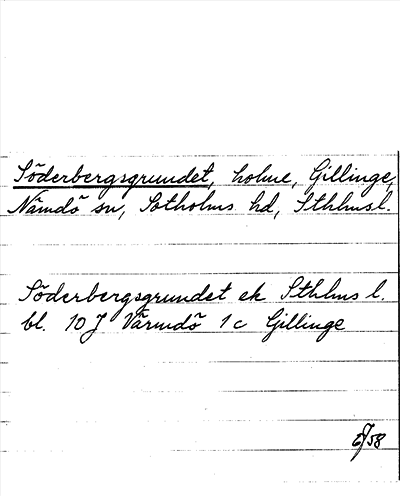 Söderbergsgrundet, holme, Gillinge,
Nämdö sn, Sotholms hd, Sthlmsl.
Söderbergsgrundet ek Sthlms l.
bl. 10 J Värmdö 1 c Gillinge